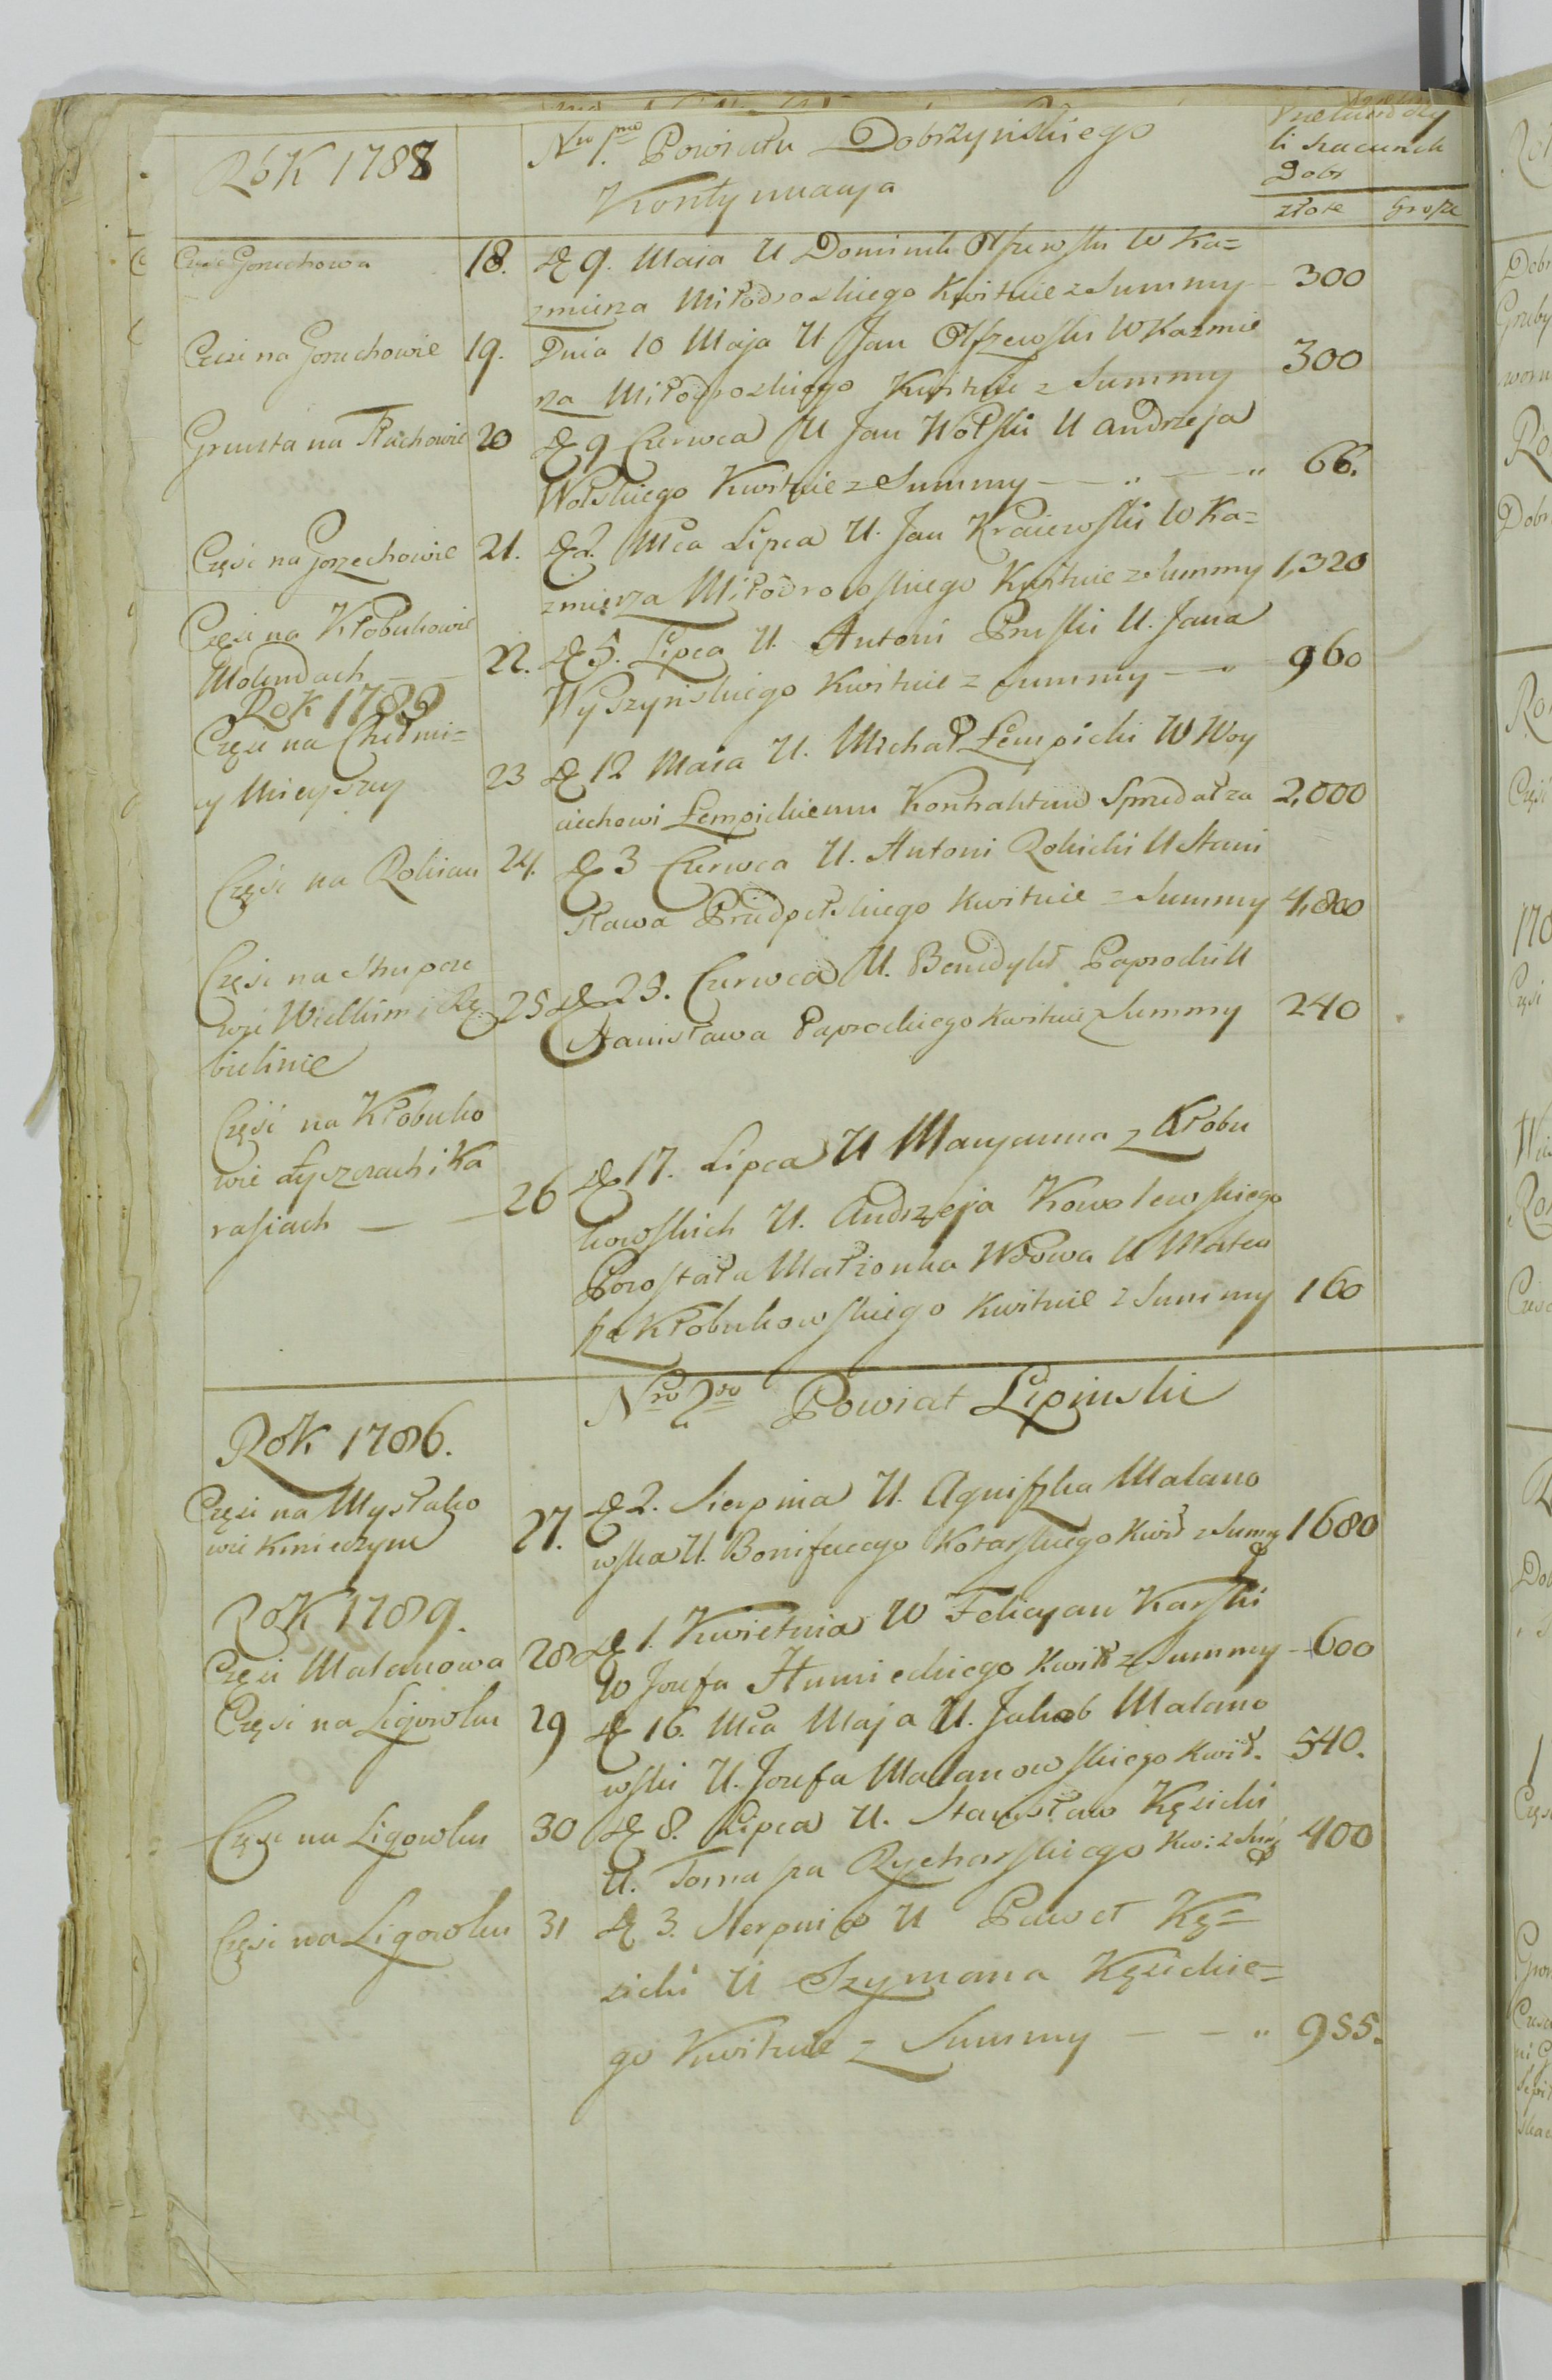 Rok 1788
Nro 1mo Powiatu Dobrzyńskiego
Kontynuacya
li szacunek
Dobr
złote Grosze
Części Gorzechowa 18. D. 9. Maia U Dominik Olszewski W Ka=
zmierza Miłodroskiego Kwituie z Summy 300
Części na Gorzechowie 19. Dnia 10 Maja U Jan Olszewski W Kazmie
rza Miłodroskiego Kwituie z Summy 300
Grunta na Tłuchowie 20 D. 9 Czerwca U Jan Wolski U Andrzeja
Wolskiego Kwituie z Summy — " — " 66.
Części na Gorzechowie 21. D. 2. Mca Lipca U. Jan Kraiewski W Ka=
zmierza Miłodrowskiego Kwituie z Summy 1,320
Części na Kłobukowie
Molendach — 22. D. 5. Lipca U. Antoni Pruski U. Jana
Wyszyńskiego Kwituie z Summy — " 960
Rok 1789
Części na Chełmi=
cy Mieyszey 23 D. 12 Maia U. Michał Łempicki W Woy
ciechowi Łempickiemu Kontraktem Sprzedał za 2,000
Części na Rokicu 24. D. 3 Czerwca U. Antoni Rokicki U Stani
sława Przedpełskiego Kwituie z Summy 4,800
Części na Skupcze
wie Wielkim i Rę 25 D. 23. Czerwca U. Benedykt Paprocki U
bielinie
Stanisława Paprockiego Kwituie z Summy 240
Części na Kłobuko
wie Łyszczach i Ka
rasiach — — 26 D. 17. Lipca U Maryanna z Kłobu
kowskich U. Andrzeja Kowalewskiego
Pozostała Małżonka Wdowa U Mateu
sza Kłobukowskiego Kwituie z Summy 160
Nro 2do Powiat Lipinski
Rok 1786.
Części na Mysłako
wie Knieczym 27. D. 2. Sierpnia U. Agniszka Malano
wska U. Bonifacego Kotarskiego Kwit z Sumy 1680
Rok 1789.
Części Malanowa 28 D. 1. Kwietnia W Felicyan Karski
W Jozefa Humieckiego Kwit z Summy — 600
Części na Ligowku 29 D. 16. Mca Maja U. Jakob Malano
wski U. Jozefa Malanowskiego Kwit. 540.
Części na Ligowku 30 D. 8. Lipca U. Stanisław Kęsicki
U. Tomasza Rycharskiego Kwi: z Sumy 400
Części na Ligowku 31 D. 3. Sierpnia U Paweł Kę=
sicki U Szymona Kęsickie=
go Kwituie z Summy — — " 955.